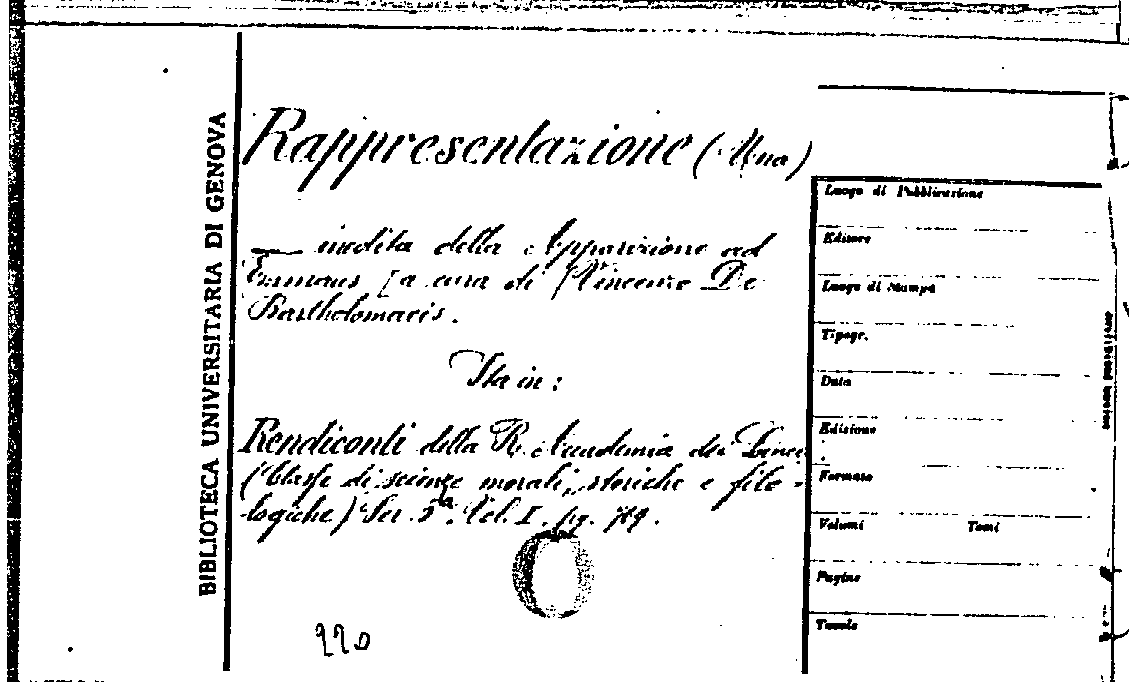 BIBLIOTECA UNIVERSITARIA DI GENOVA
Rappresentazione (Una)
— inedita della Apparizione ad
Emmaus [a cura di Vincenzo De
Bartholomaeis.
Sta in:
Rendiconti della R. Accademia dei Lincei
(Classe di scienze morali, storiche e filo-
logiche) Ser. 5ª. Vol. I. pg.
220
Luogo di Pubblicazione
Editore
Luogo di Stampa
Tipogr.
Data
Edizione
Formato
Volumi Tomi
Pagine
Tavole